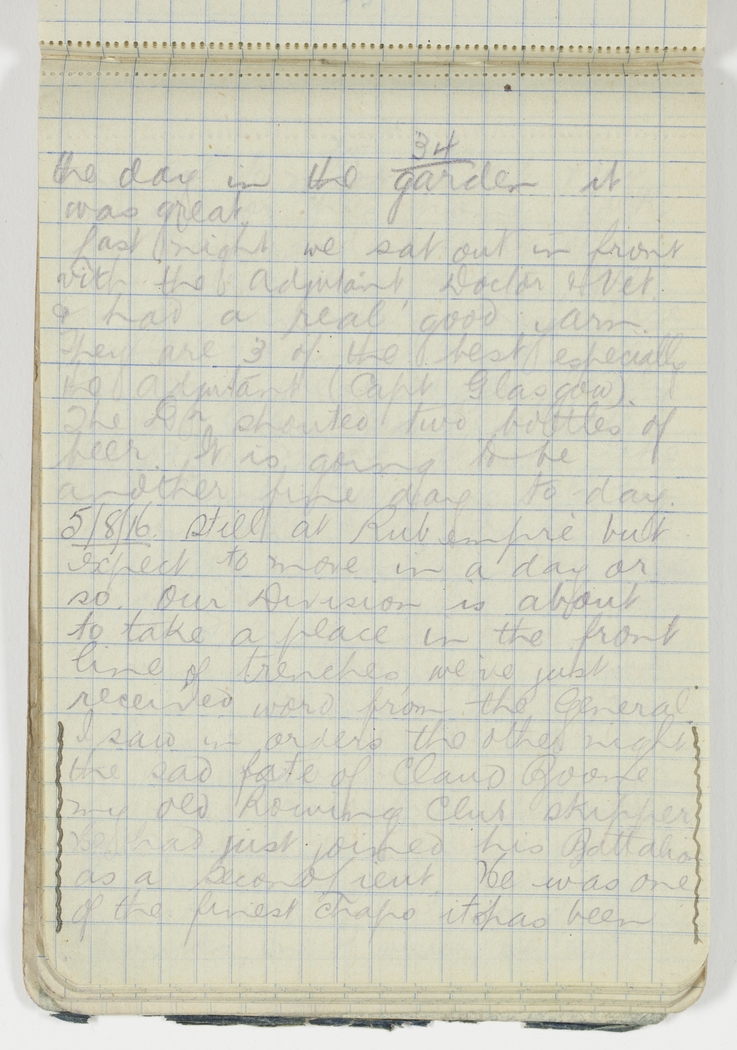 34
the day in the garden it
was great.
Last night we sat out in front
with the Adjutant Doctor & Vet.
& had a real good yarn.
They are 3 of the best especially
the Adjutant (Capt Glasgow).
The Dr shouted two bottles of
beer. It is going to be
another fine day to-day.
5/8/16. Still at Rubempré but
expect to move in a day or
so. Our Division is about
to take a place in the front
line of trenches we've just
received word from the General
I saw in orders the other night
the sad fate of Claud Boome
my old Rowing Club skipper
He had just joined his Battalion
as a Second Lieut. He was one
of the finest chaps it has been